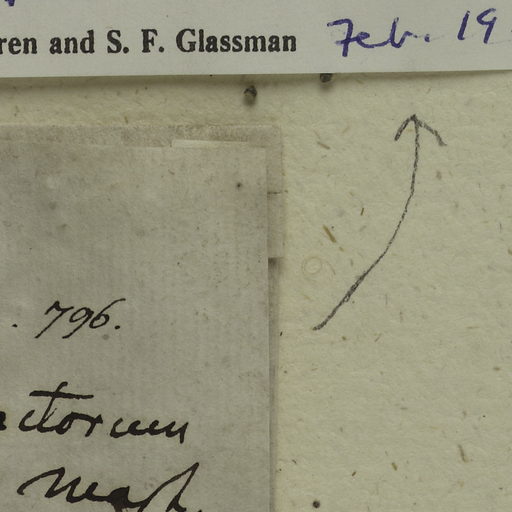 ren and S. F. Glassman Feb. 19
. 796.
ctorum